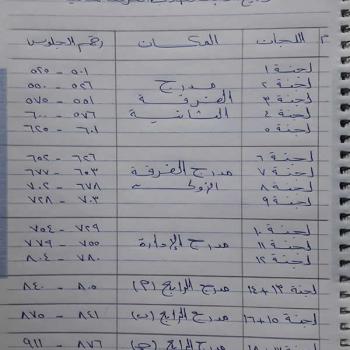 م اللجان المكان رقم الجلوس
لجنة ١ ٥٠١ - ٥٢٥
لجنة ٢ مدرج ٥٢٦ - ٥٥٠
لجنة ٣ الفرقة ٥٥١ - ٥٧٥
لجنة ٤ الثانية ٥٧٦ - ٦٠٠
لجنة ٥ ٦٠١ - ٦٢٥
لجنة ٦ ٦٢٦ - ٦٥٢
لجنة ٧ مدرج الفرقة ٦٥٣ - ٦٧٧
لجنة ٨ الأولى ٦٧٨ - ٧٠٢
لجنة ٩ ٧٠٣ - ٧٢٨
لجنة ١٠ ٧٢٩ - ٧٥٤
لجنة ١١ مدرج الإدارة ٧٥٥ - ٧٧٩
لجنة ١٢ ٧٨٠ - ٨٠٤
لجنة ١٣+١٤ مدرج الرابع (م) ٨٠٥ - ٨٤٠
لجنة ١٥+١٦ مدرج الرابع (ب) ٨٤١ - ٨٧٥
مدرج الرابع ٨٧٦ - ٩١١